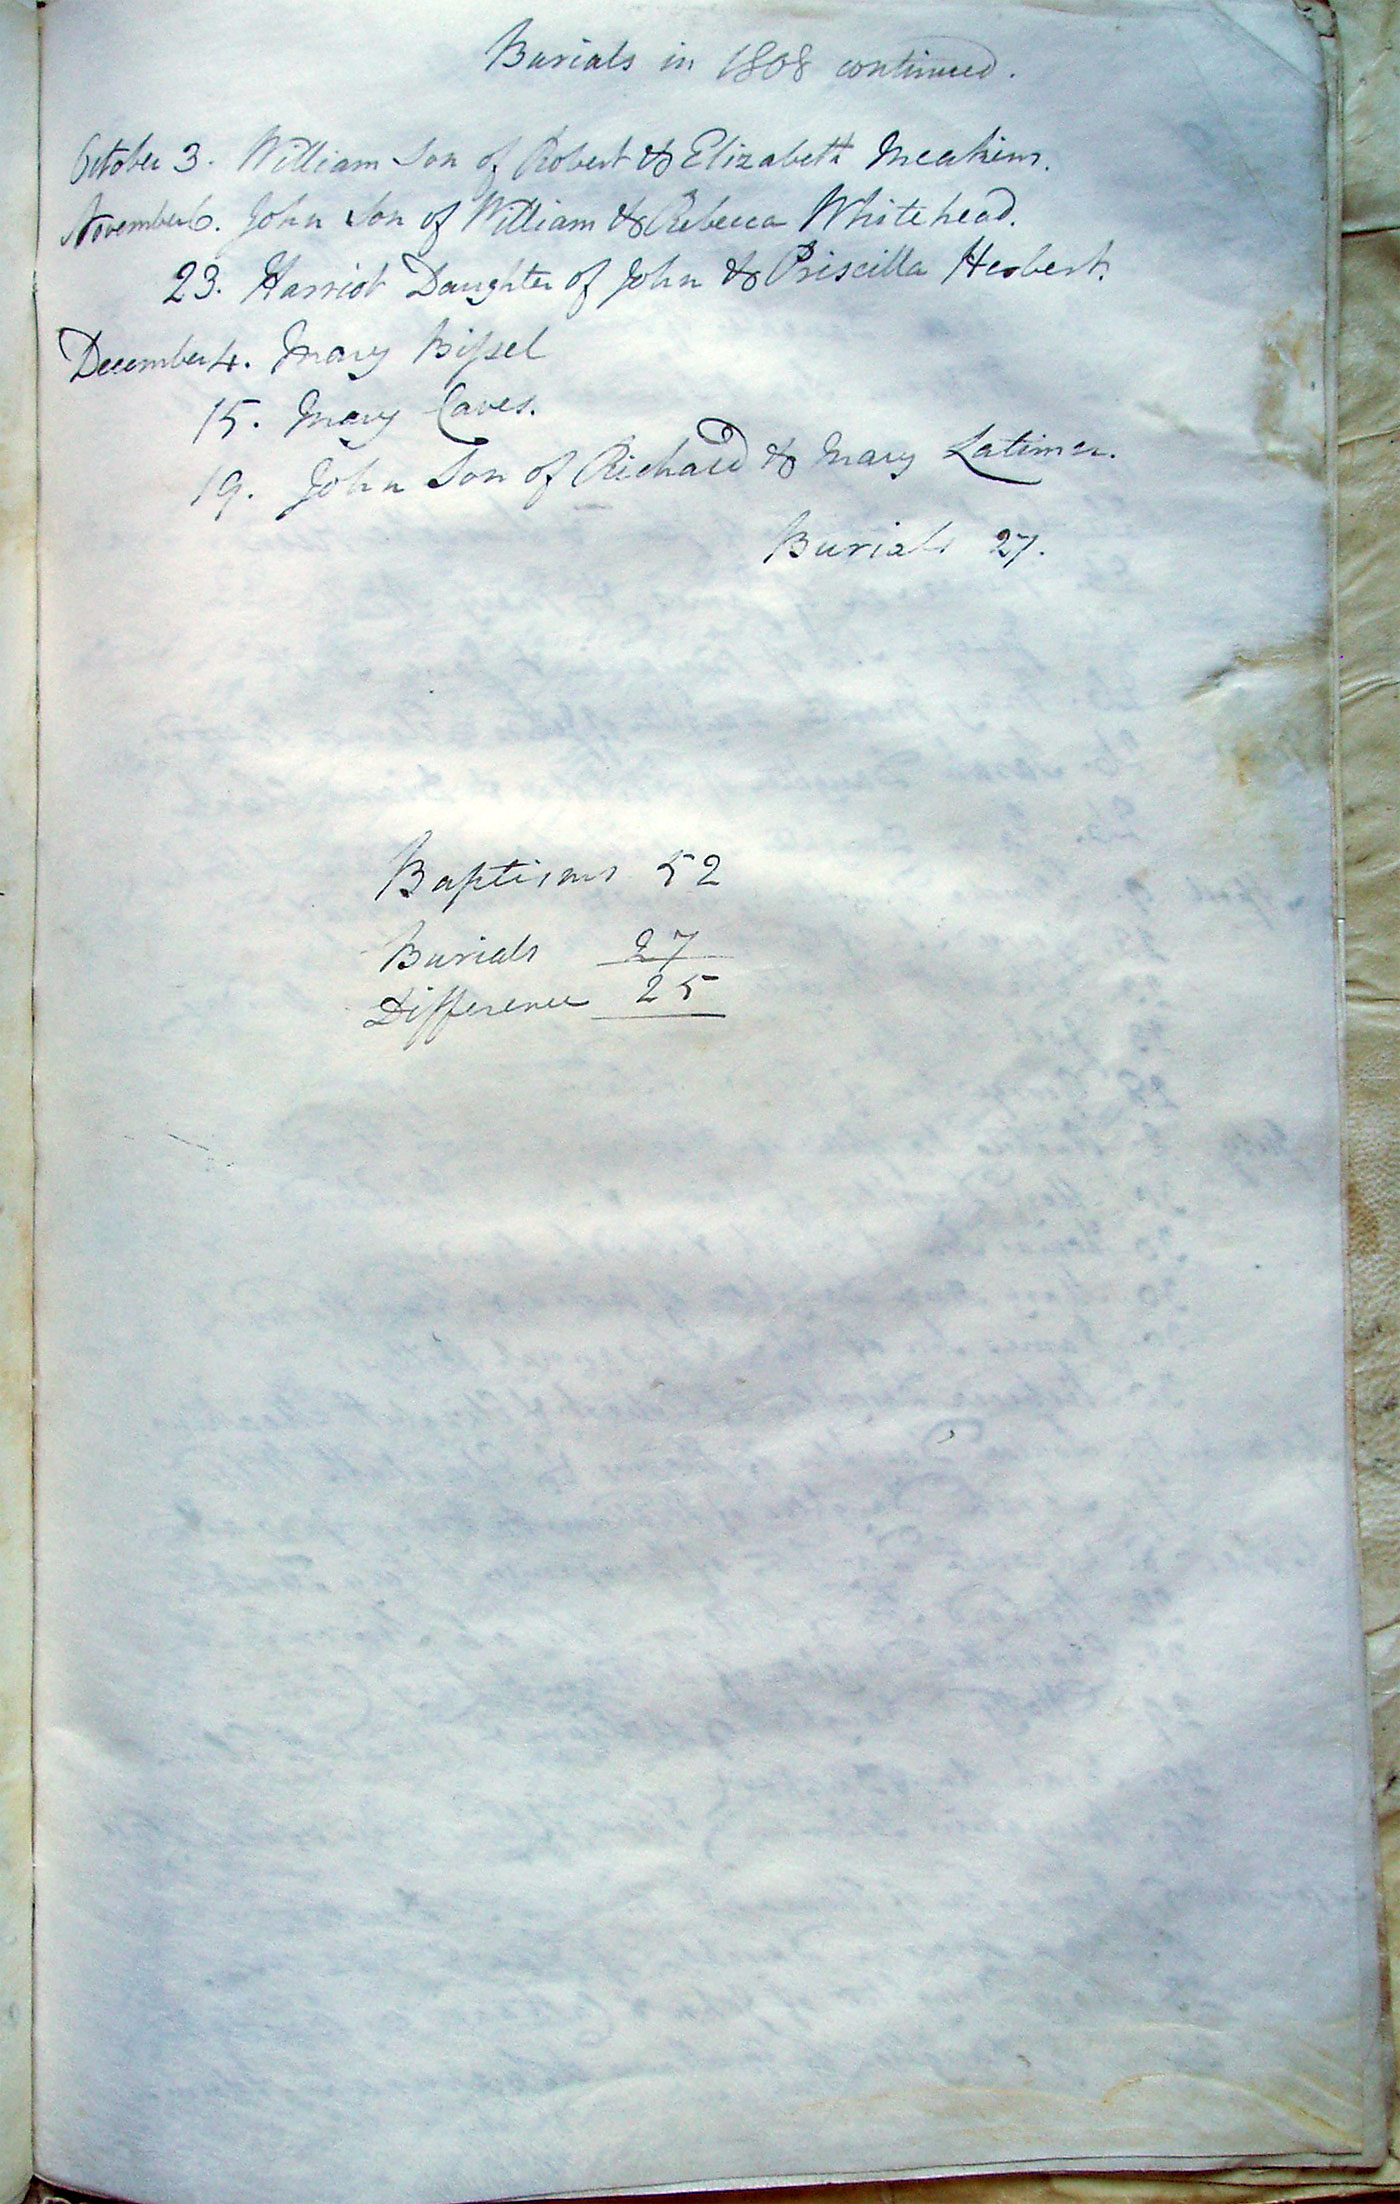 Burials in 1808 continued.
October 3. William Son of Robert & Elizabeth Meakins.
November 6. John Son of William & Rebecca Whitehead.
23. Harriot Daughter of John & Priscilla Herbert.
December 4. Mary Bissel
15. Mary Caves.
19. John Son of Richard & Mary Latimer.
Burials 27.
Baptisms 52
Burials 27
Difference 25